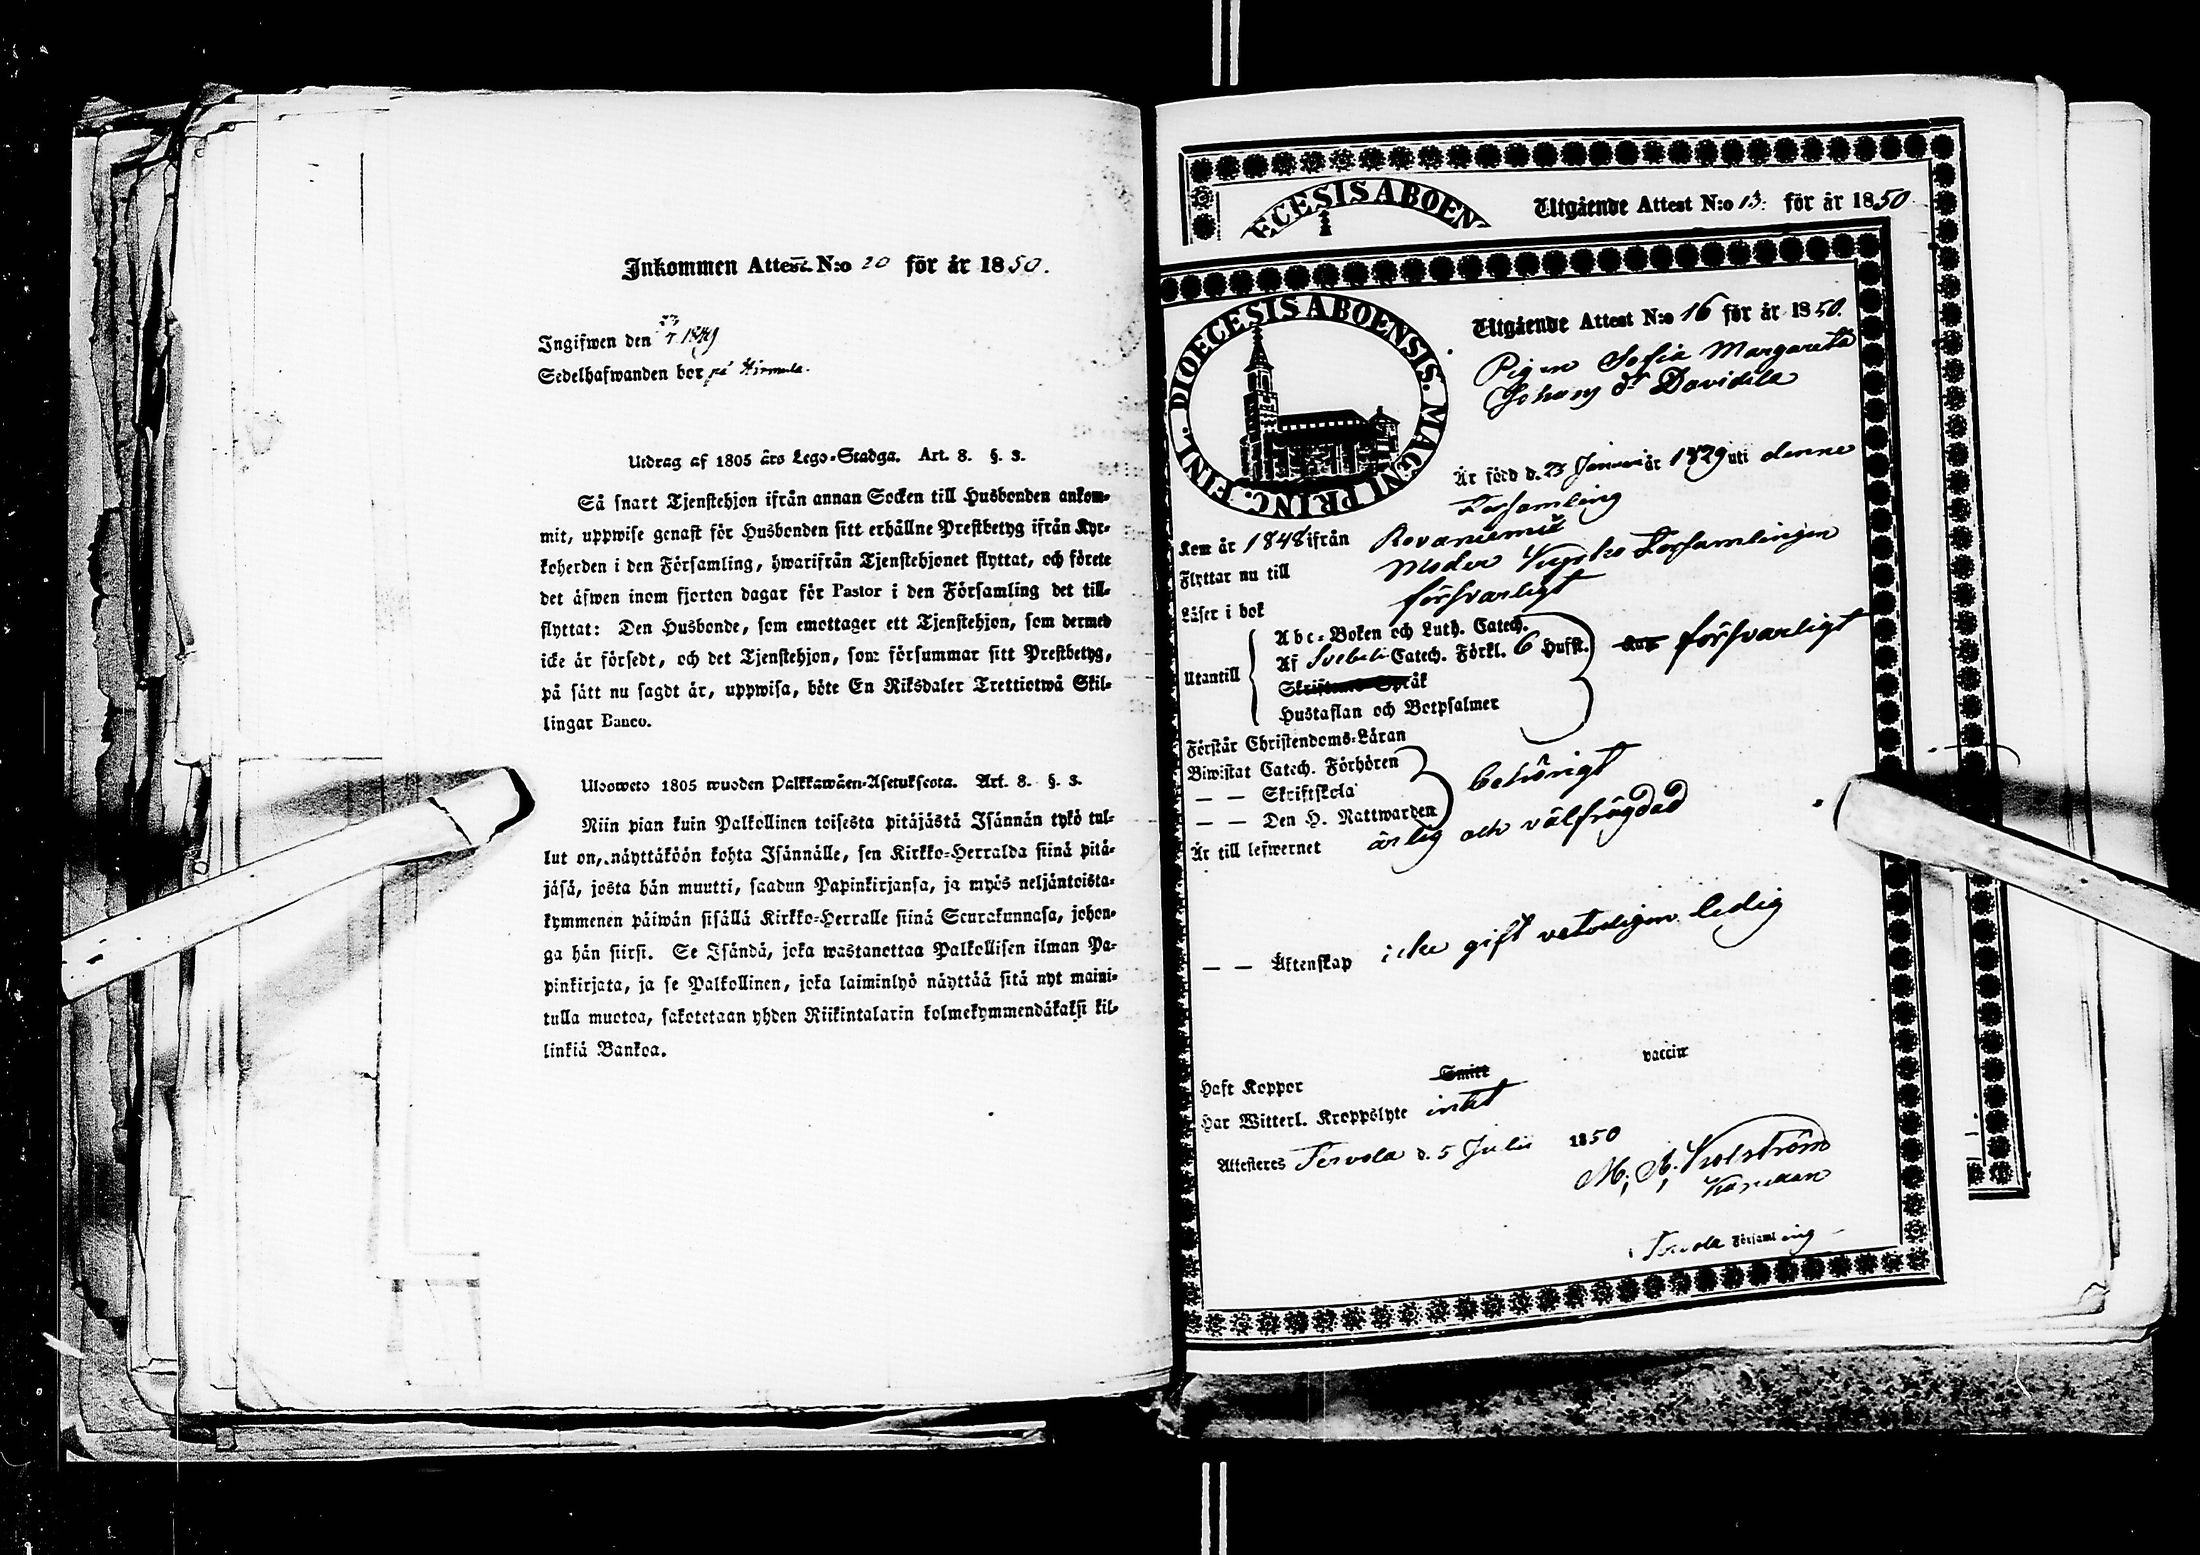 Inkommen Attest N:o 20 för år 1850.
Ingifwen den 23/7 1849
Sedelhafwanden bor på
Utdrag af 1805 års Lego-Stadga. Art. 8. §. 3.
Så snart Tjenstehjon ifrån annan Socken till Husbonden ankom-
mit, uppwise genast för Husbonden sitt erhållne Prestbetyg ifrån Kyr-
koherden i den Församling, hwarifrån Tjenstehjonet flyttat, och förete
det äfwen inom fjorton dagar för Pastor i den Församling det till-
flyttat: Den Husbonde, som emottager ett Tjenstehjon, som dermed
icke är försedt, och det Tjenstehjon, som försummar sitt Prestbetyg,
på sätt nu sagdt är, uppwisa, böte En Riksdaler Trettiotwå Skil-
lingar Banco.
Ulosweto 1805 wuoden Palkkawäen-Asetuksesta. Art. 8. §. 3.
Niin pian kuin Palkollinen toisesta pitäjästä Isännän tykö tul-
lut on, näyttäköön kohta Isännälle, sen Kirkko-Herralda siinä pitä-
jäsä, josta hän muutti, saadun Papinkirjansa, ja myös neljäntoista-
kymmenen päiwän sisällä Kirkko-Herralle siinä Seurakunnasa, johon-
ga hän siirsi. Se Isändä, joka wastanottaa Palkollisen ilman Pa-
pinkirjata, ja se Palkollinen, joka laiminlyö näyttää sitä nyt maini-
tulla muotoa, sakotetaan yhden Riikintalarin kolmekymmendäkaksi kil-
linkiä Bankoa.
ECESIS ABOEN
Utgående Attest N:o 13. för år 1850
DIOECESIS ABOENSIS. MAGNI PRINC. FINL.
Utgående Attest N:o 16 för år 1850.
Pigan Sofia Margareta
Johans dr Davidila
Är född d. 23 Januari år 1829 uti denne
Församling
Kom år 1848 ifrån Rovaniemi
Flyttar nu till Moder Kyrko Församlingen
Läser i bok försvarligt
Utantill
Abc-Boken och Luth. Catech.
Af Svebeli Catech. Förkl. 6 Hufst. försvarligt
Skriftenes Språk
Hustaflan och Botpsalmer
Förstår Christendoms-Läran
Biwistat Catech. Förhören
— — Skriftskola behörigt
— — Den H. Nattwarden
Är till lefwernet ärlig och välfrägdad
— — Äktenskap icke gift veterligen ledig
Haft Koppor Smitt vaccin
Har Witterl. Kroppslyte intet
Attesteres Tervola d. 5 Julii 1850
M. A.
Tervola Församling